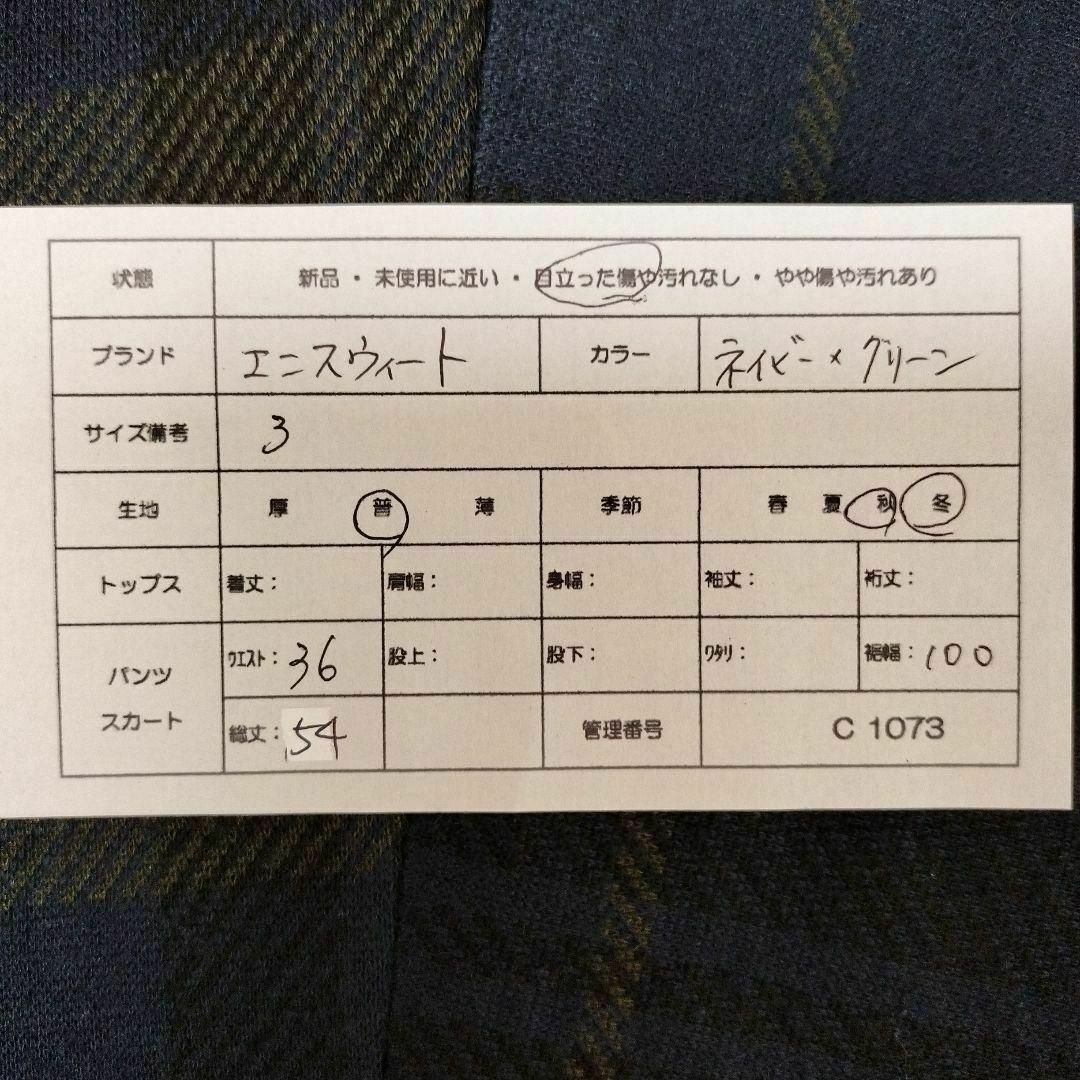 状態 新品 ・ 未使用に近い ・ 目立った傷や汚れなし ・ やや傷や汚れあり
ブランド エニスウィート カラー ネイビー×グリーン
サイズ備考 3
生地 厚 普 薄 季節 春 夏 秋 冬
トップス 着丈: 肩幅: 身幅: 袖丈: 裄丈:
パンツ スカート ウエスト: 36 股上: 股下: ワタリ: 裾幅: 100
総丈: 54 管理番号 C 1073